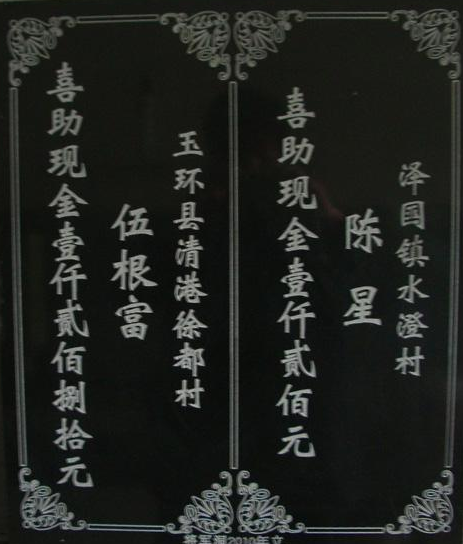 泽国镇水澄村
陈星
喜助现金壹仟贰佰元
玉环县清港徐都村
伍根富
喜助现金壹仟贰佰捌拾元
将军洞2010年立